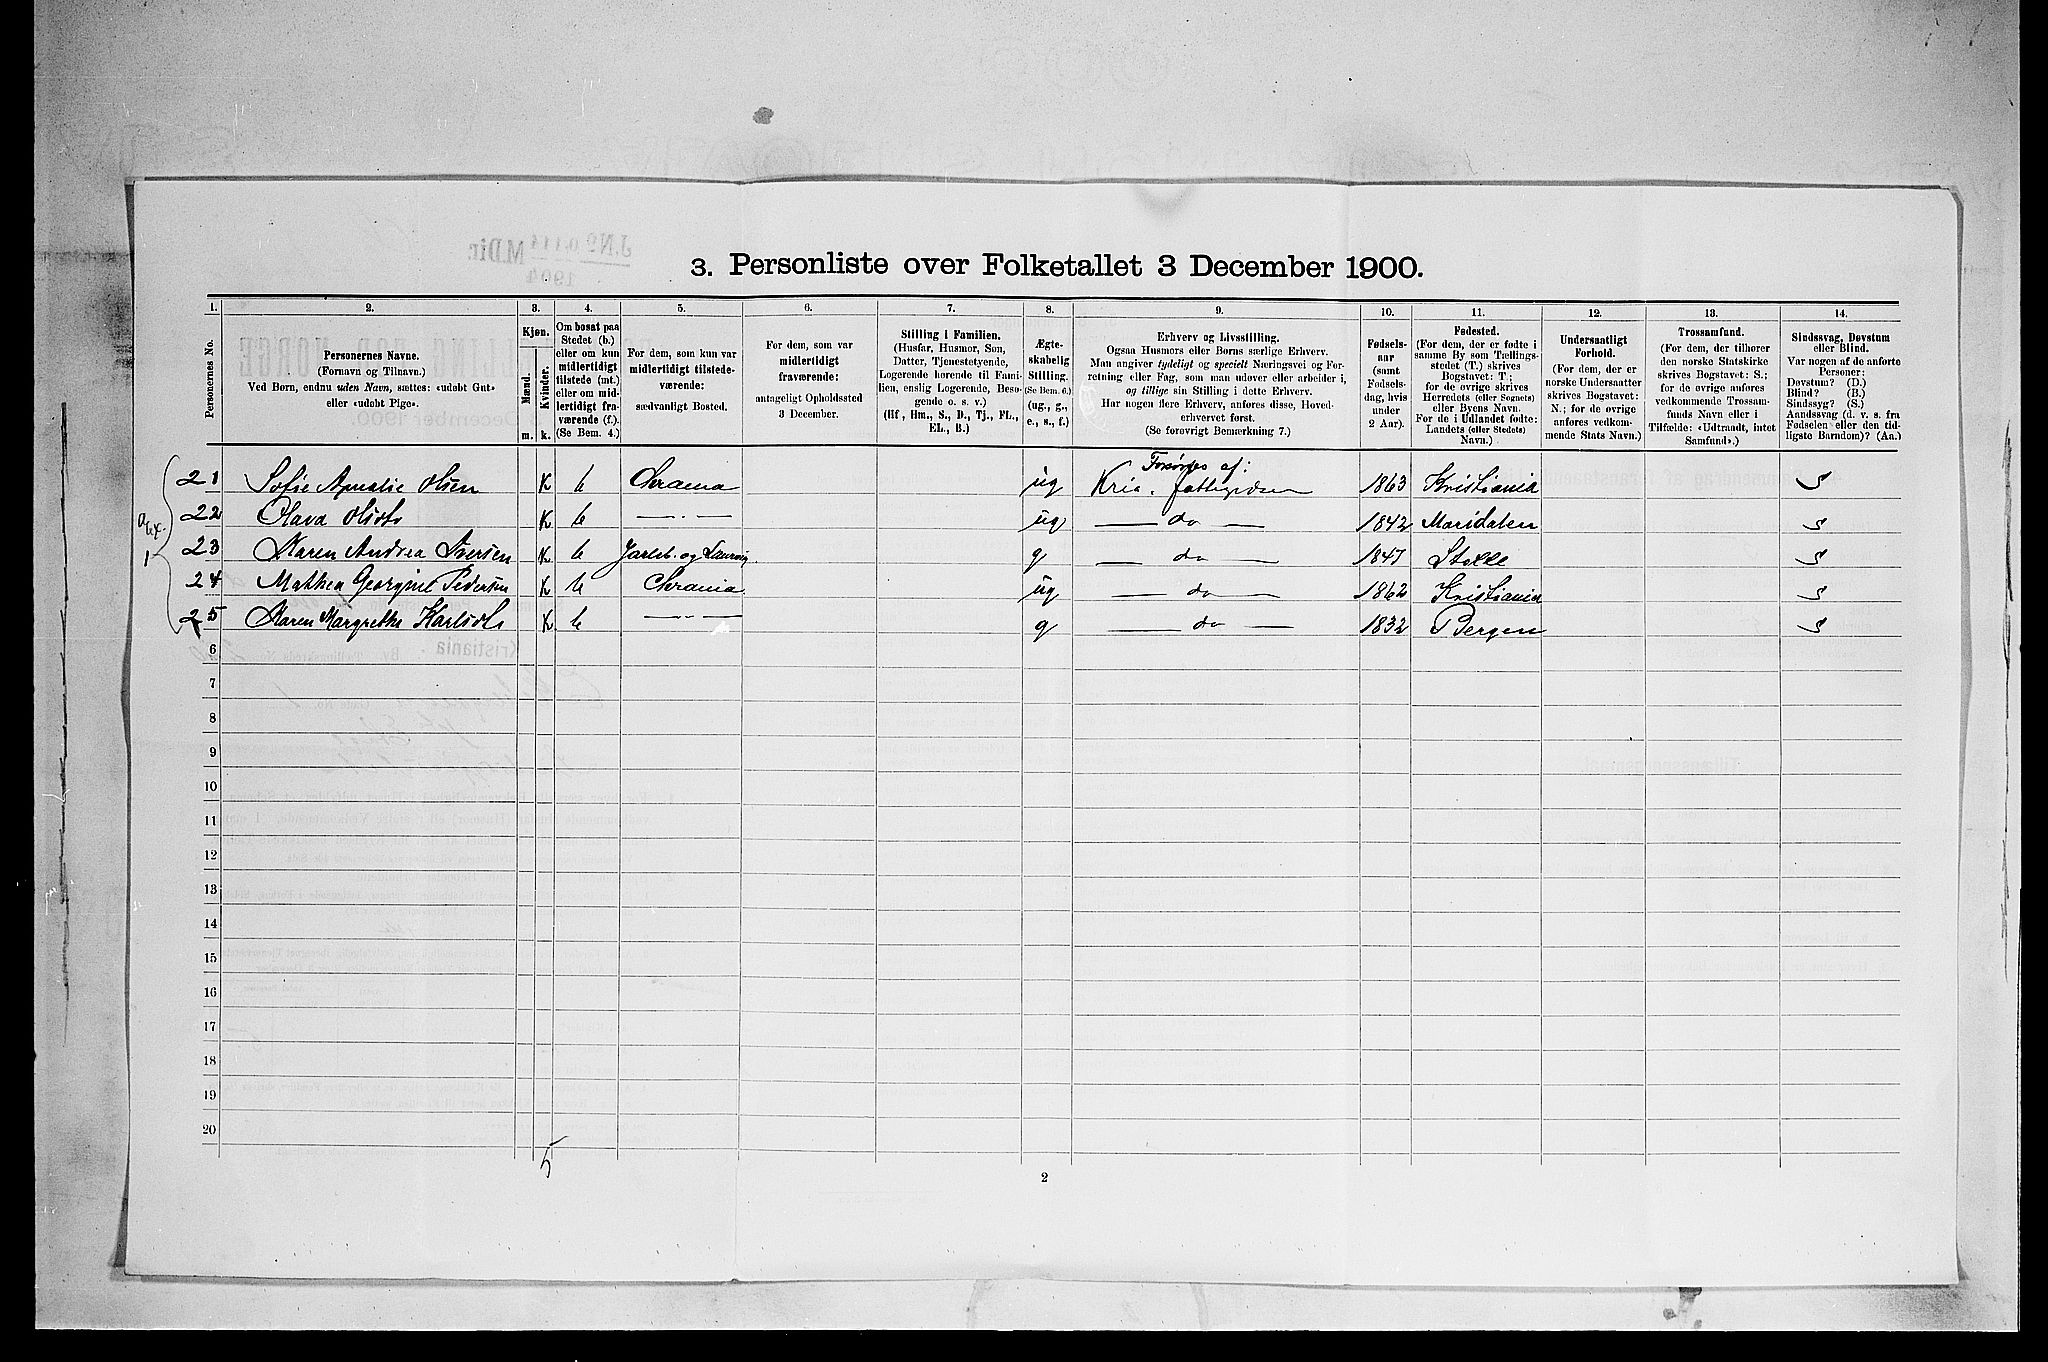 3. Personliste over Folketallet 3 December 1900.
1. 2. 3. 4. 5. 6. 7. 8. 9. 10. 11. 12. 13. 14.
Personernes No.
Personernes Navne.
(Fornavn og Tilnavn.)
Ved Børn, endnu uden Navn, sættes: «udøbt Gut»
eller «udøbt Pige».
Kjøn.
Mænd.
Kvinder.
m. k.
Om bosat paa
Stedet (b.)
eller om kun
midlertidigt
tilstede (mt.)
eller om mid-
lertidigt fra-
værende (f.).
(Se Bem. 4.)
For dem, som kun var
midlertidigt tilstede-
værende:
sædvanligt Bosted.
For dem, som var
midlertidigt
fraværende:
antageligt Opholdssted
3 December.
Stilling i Familien.
(Husfar, Husmor, Søn,
Datter, Tjenestetyende,
Logerende hørende til Fami-
lien, enslig Logerende, Besø-
gende o. s. v.)
(Hf., Hm., S., D., Tj., FL.,
EL., B.)
Ægte-
skabelig
Stilling.
(Se Bem. 6.)
(ug., g.,
e., s., f.)
Erhverv og Livsstilling.
Ogsaa Husmors eller Børns særlige Erhverv.
Man angiver tydeligt og specielt Næringsvei og For-
retning eller Fag, som man udøver eller arbeider i,
og tillige sin Stilling i dette Erhverv.
Har nogen flere Erhverv, anføres disse, Hoved-
erhvervet først.
(Se forøvrigt Bemærkning 7.)
Fødsels-
aar
(samt
Fødsels-
dag, hvis
under
2 Aar).
Fødested.
(For dem, der er fødte i
samme By som Tællings-
stedet (T.) skrives
Bogstavet: T;
for de øvrige skrives
Herredets (eller Sognets)
eller Byens Navn.
For de i Udlandet fødte:
Landets (eller Stedets)
Navn.)
Undersaatligt
Forhold.
(For dem, der er
norske Undersaatter
skrives Bogstavet:
N.; for de øvrige
anføres vedkom-
mende Stats Navn.)
Trossamfund.
(For dem, der tilhører
den norske Statskirke
skrives Bogstavet: S.;
for de øvrige anføres
vedkommende Trossam-
funds Navn eller i
Tilfælde: «Udtraadt, intet
Samfund».)
Sindssvag, Døvstum
eller Blind.
Var nogen af de anførte
Personer:
Døvstum? (D.)
Blind? (B.)
Sindssyg? (S.)
Aandssvag (d. v. s. fra
Fødselen eller den tid-
ligste Barndom)? (Aa.)
21 Sofie Amalie Olsen K b Chrania ug Forsørges af: Kria. fattigvæsen 1863 Kristiania S
22 Olava Olsdt. K b — " — ug — do — 1842 Maridalen S
23 Karen Andrea Iversen K b Jarlsb. og Laurvig g — do — 1847 Stokke S
24 Mathea Georgine Pedersen K b Chrania ug — do — 1862 Kristiania S
25 Karen Margrethe Karlsdt. K b — " — g — do — 1832 Bergen S
6
7
8
9
10
11
12
13
14
15
16
17
18
19
20
5
2